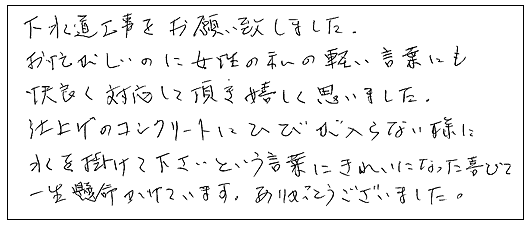 下水道工事をお願い致しました.
お忙がしいのに女性の私の軽い言葉にも
快良く対応して頂き嬉しく思いました.
仕上げのコンクリートにひびが入らない様に
水を掛けて下さいという言葉にきれいになった喜びで
一生懸命かけています. ありがとうございました。